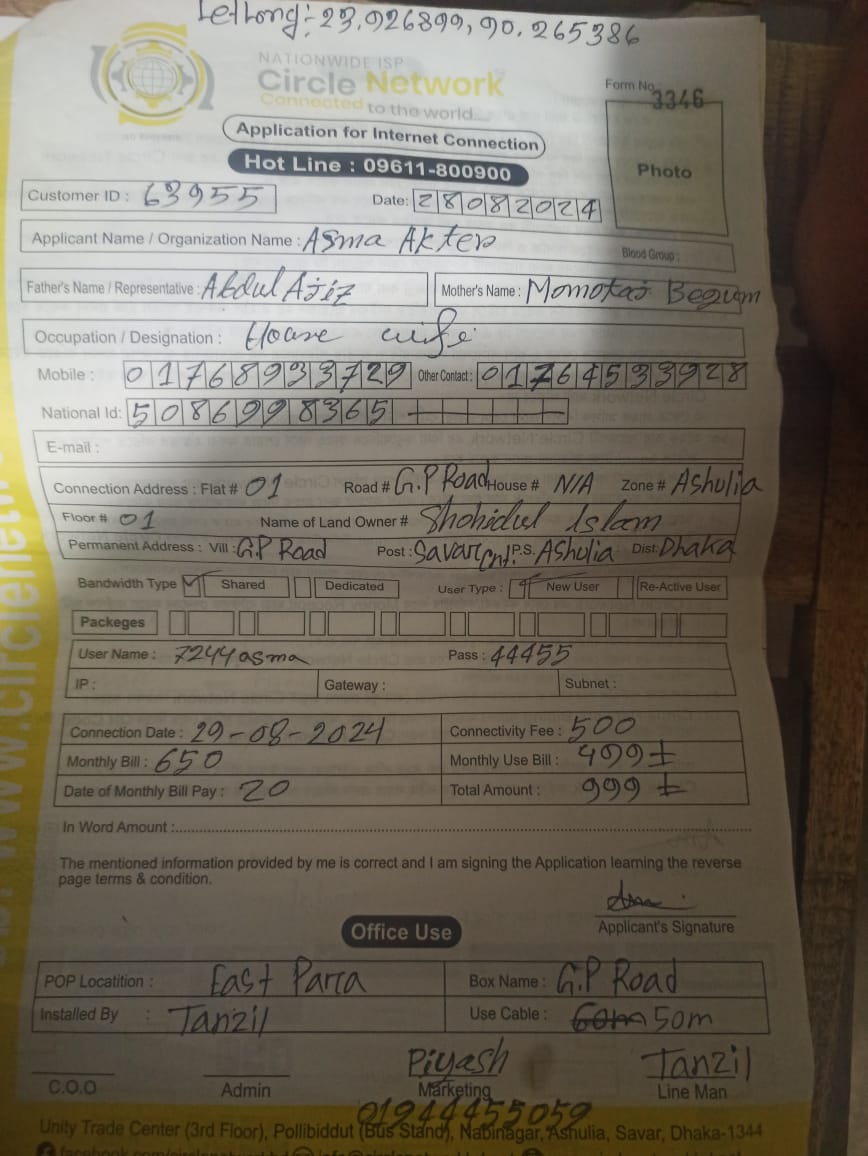 Let Long:- 23.926899, 90.265386
NATIONWIDE ISP
Circle Network
Connected to the world....
Form No. 3346
Application for Internet Connection
Hot Line : 09611-800900
Photo
Customer ID : 63955 Date: 28082024
Applicant Name / Organization Name : Asma Akter
Blood Group :
Father's Name / Representative : Abdul Ajiz Mother's Name : Momotaj Begum
Occupation / Designation : House wife
Mobile : 01768933729 Other Contact : 01764533928
National Id: 5086998365
E-mail :
Connection Address : Flat # 01 Road # G.P Road House # N/A Zone # Ashulia
Floor # 01 Name of Land Owner # Shohidul Islam
Permanent Address : Vill : G.P Road Post : Savar Cnt. P.S. Ashulia Dist. Dhaka
Bandwidth Type Shared Dedicated User Type : New User Re-Active User
Packeges
User Name : 7244asma Pass : 44455
IP : Gateway : Subnet :
Connection Date : 29-08-2024 Connectivity Fee : 500
Monthly Bill : 650 Monthly Use Bill : 499
Date of Monthly Bill Pay : 20 Total Amount : 999
In Word Amount :
The mentioned information provided by me is correct and I am signing the Application learning the reverse
page terms & condition.
Applicant's Signature
Office Use
POP Locatition : East Parra Box Name : G.P Road
Installed By : Tanzil Use Cable : 60m 50m
Piyash Tanzil
C.O.O Admin Marketing Line Man
01944455059
Unity Trade Center (3rd Floor), Pollibiddut (Bus Stand), Nabinagar, Ashulia, Savar, Dhaka-1344